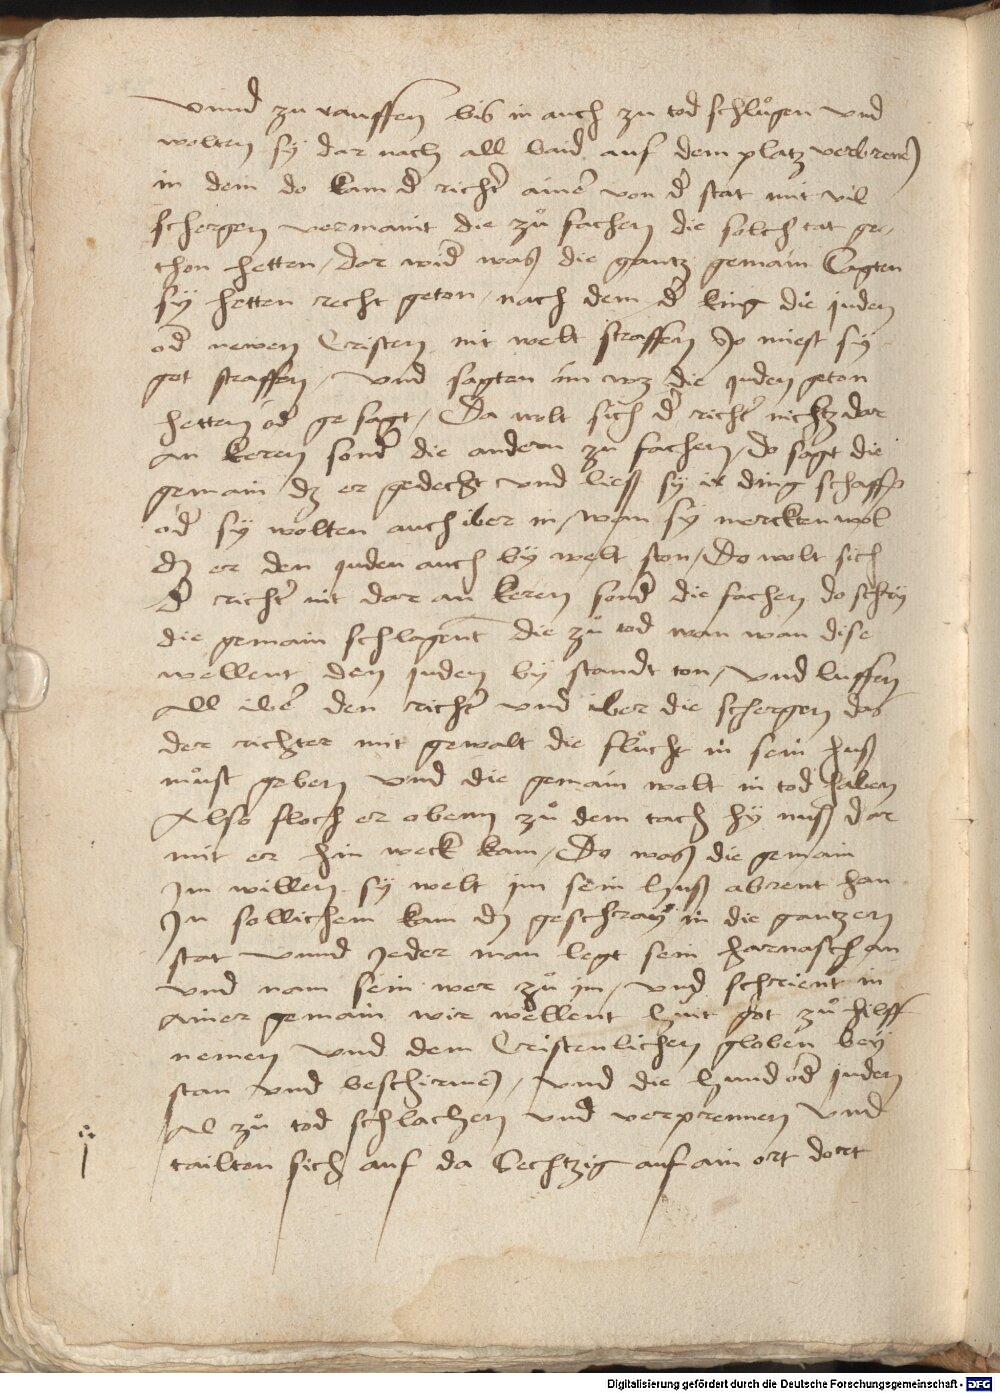 vnnd zu rauffen bis in auch zu tod schlůgen vnd
wolten sy dar nach all baid auf dem platz verbrenē
in dem do kam d' richt' ainē von d' stat mit vil
schergen vermaint die zů fachen die solch tat ge-
thon hetten / dar wid' was die gantz gemain sagten
sy hetten recht geton / nach dem d' king die juden
od' newen Cristen nit welt straffen so miest sy
got straffen / vnd sagten im wz die juden geton
hetten od' gesagt / Da wolt sich d' richt' nichtz dar
an keren sond' die andern zu fachen / do sagt die
gemain dz er gedecht vnd ließ sy ir ding schaffē
od' sy wolten auch iber in / wan sy merckten wol
dz er den juden auch by welt ston / Do wolt sich
d' richt' nit dar an keren sond' die fachen do schry
die gemain schlagent die zů tod wan wan dise
wellent den juden by standt ton / vnd luffen
All ibē den richt' vnd iber die schergen das
der richter mit gewalt die flůcht in sein huß
můst geben vnd die gemain wolt in tod haben
Also floch er obenn zů dem tach hy nuß dar
mit er hin weck kam / Do was die gemain
Im willen sy welt im sein huß abrent han
In sollichem kam dz geschray in die gantzen
stat vnnd Jeder man legt sein harnasch an
vnd nam sein wer zů im / vnd schrient in
ainer gemain wir wellent huit got zů hilff
nemen vnd dem Cristenlichen globen bey
stan vnd beschirmē / vnd die hund od' juden
Al zů tod schlachen vnd verprennen vnd
tailten sich auf da sechtzig auf ain ort dort
Digitalisierung gefördert durch die Deutsche Forschungsgemeinschaft - DFG